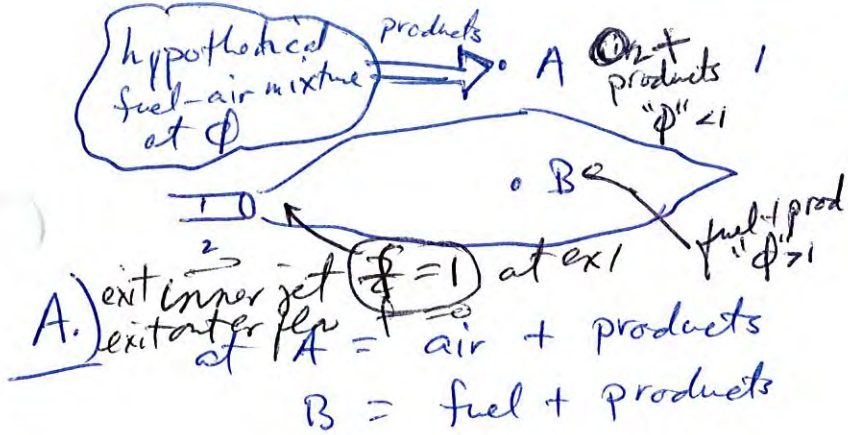 hypothetical
fuel-air mixture
at ϕ
products
A O2 +
products
"ϕ" <1
B
fuel + prod
"ϕ" >1
2
exit inner jet f = 1 at exi
A.) exit outer f = 0
at A = air + products
B = fuel + products